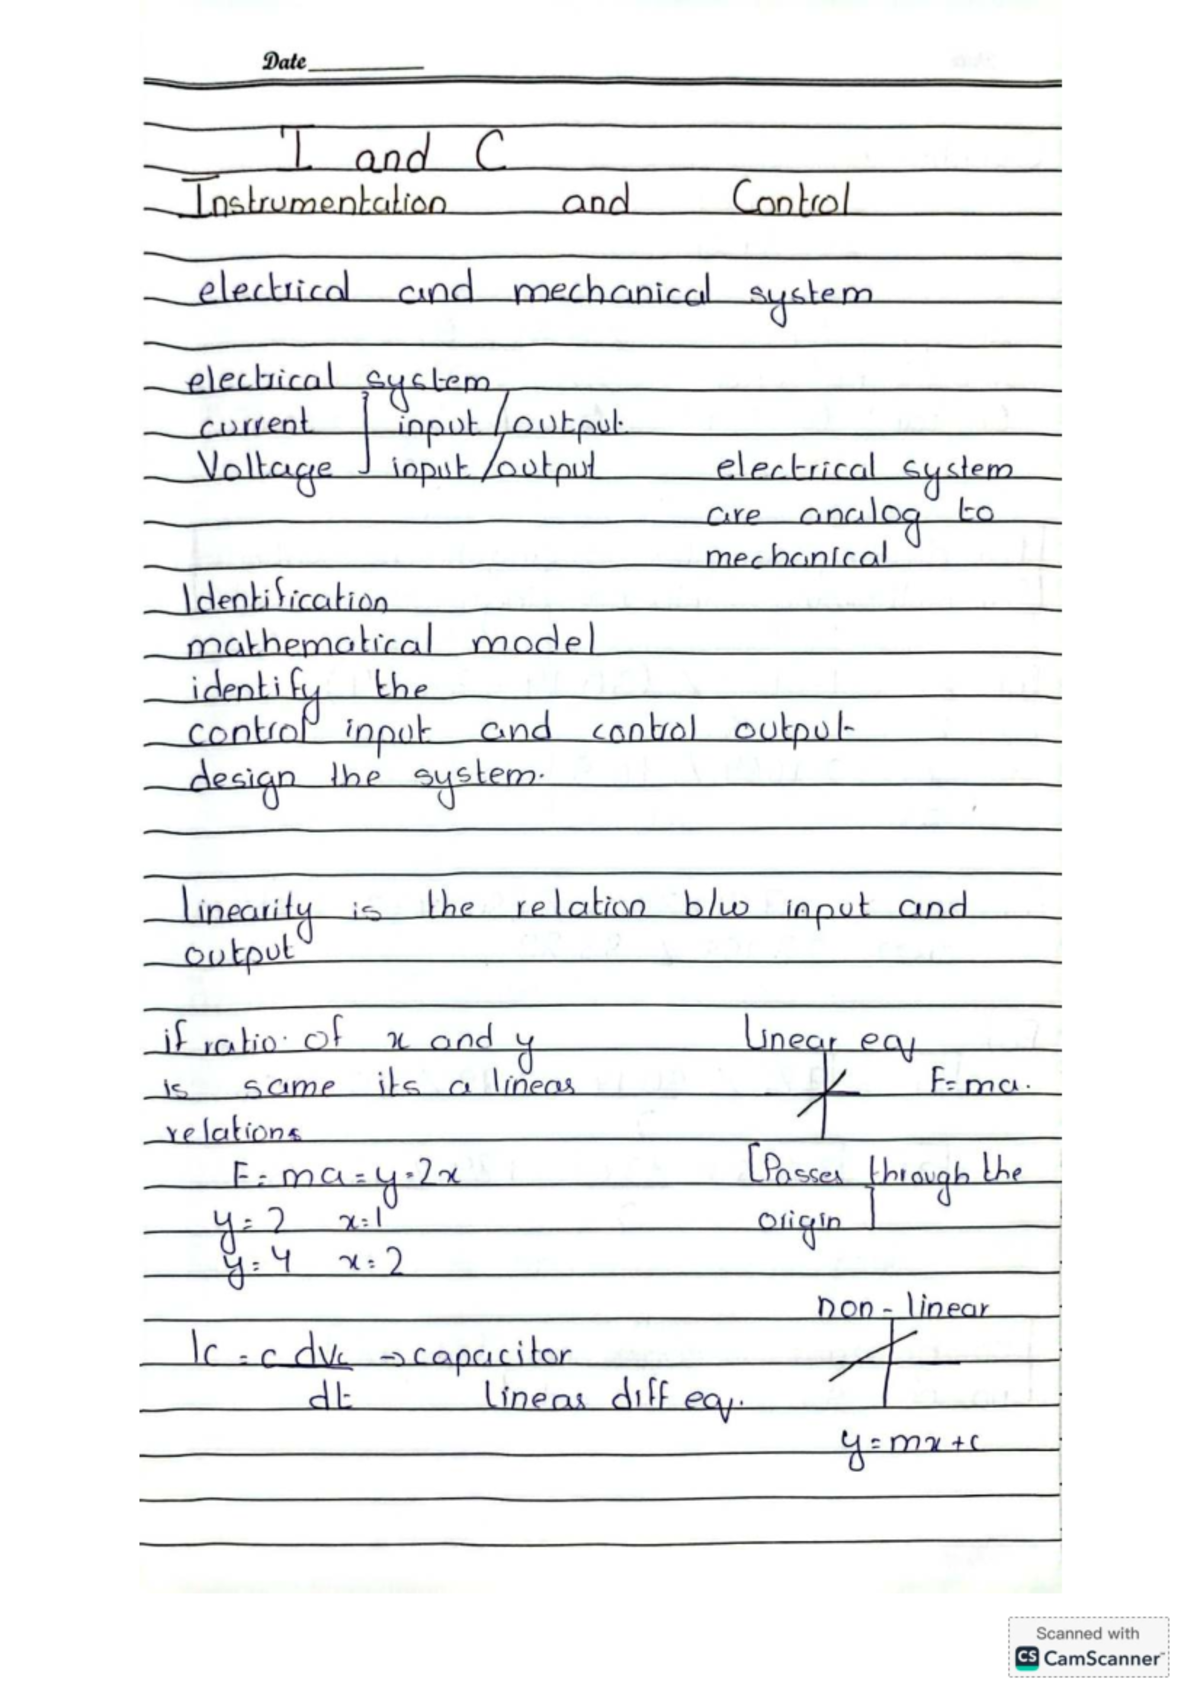 Date
I and C
Instrumentation and Control
electrical and mechanical system
electrical system
current ] input / output
Voltage ] input / output
electrical system
are analog to
mechanical
Identification
mathematical model
identify the
control input and control output
design the system.
Linearity is the relation b/w input and
output
if ratio of x and y
is same its a linear
relations
F = ma = y = 2x
y = 2 x = 1
y = 4 x = 2
Linear eq
F = ma.
[Passes through the
origin]
non - linear
y = mx + c
Ic = c dvc → capacitor
dt linear diff eq.
Scanned with
CS CamScanner